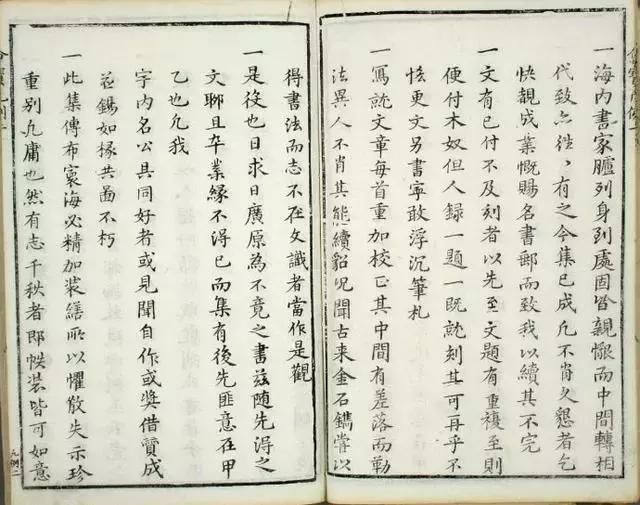 一海内書家臚列身到處固皆親懇而中間轉相
代致亦往往有之今集已成凡不肖久懇者乞
快覩成業慨賜名書郵而致我以續其不完
一文有已付不及刻者以先至文題有重複至則
便付木奴但人録一題一既就刻其可再乎不
恡更文另書寧敢浮沉筆札
一寫就文章每首重加校正其中間有差落而勒
法異人不肖其能續貂况聞古来金石鐫嘗以
得書法而志不在文識者當作是觀
一是役也日求日廣原為不竟之書兹随先得之
文聊且卒業緣不得已而集有後先匪意在甲
乙也凡我
宇内名公具同好者或見聞自作或奬借贊成
並錫如椽共啚不朽
一此集傳布寰海必精加裝繕所以懼散失示珍
重别凡庸也然有志千秋者即帙装皆可如意
凡例二